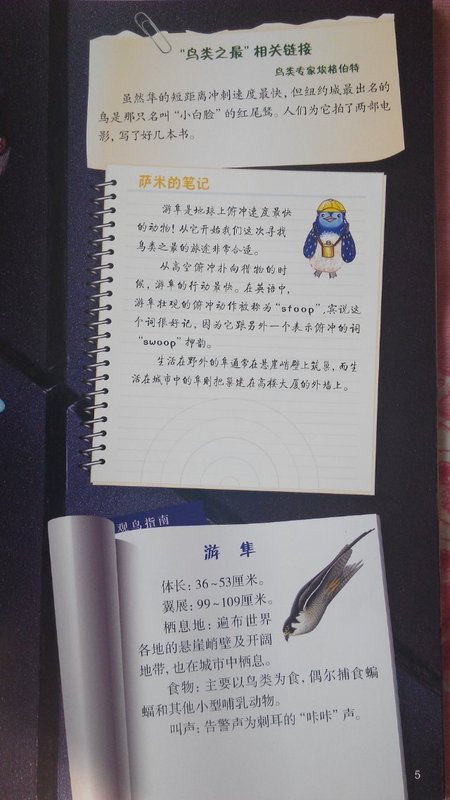 “鸟类之最”相关链接
鸟类专家埃格伯特
虽然隼的短距离冲刺速度最快，但纽约城最出名的
鸟是那只名叫“小白脸”的红尾鵟。人们为它拍了两部电
影，写了好几本书。
萨米的笔记
游隼是地球上俯冲速度最快
的动物！从它开始我们这次寻找
鸟类之最的旅途非常合适。
从高空俯冲扑向猎物的时
候，游隼的行动最快。在英语中，
游隼壮观的俯冲动作被称为“stoop”，实说这
个词很好记，因为它跟另外一个表示俯冲的词
“swoop”押韵。
生活在野外的隼通常在悬崖峭壁上筑巢，而生
活在城市中的隼则把巢建在高楼大厦的外墙上。
观鸟指南
游隼
体长：36~53厘米。
翼展：99~109厘米。
栖息地：遍布世界
各地的悬崖峭壁及开阔
地带，也在城市中栖息。
食物：主要以鸟类为食，偶尔捕食蝙
蝠和其他小型哺乳动物。
叫声：告警声为刺耳的“咔咔”声。
5